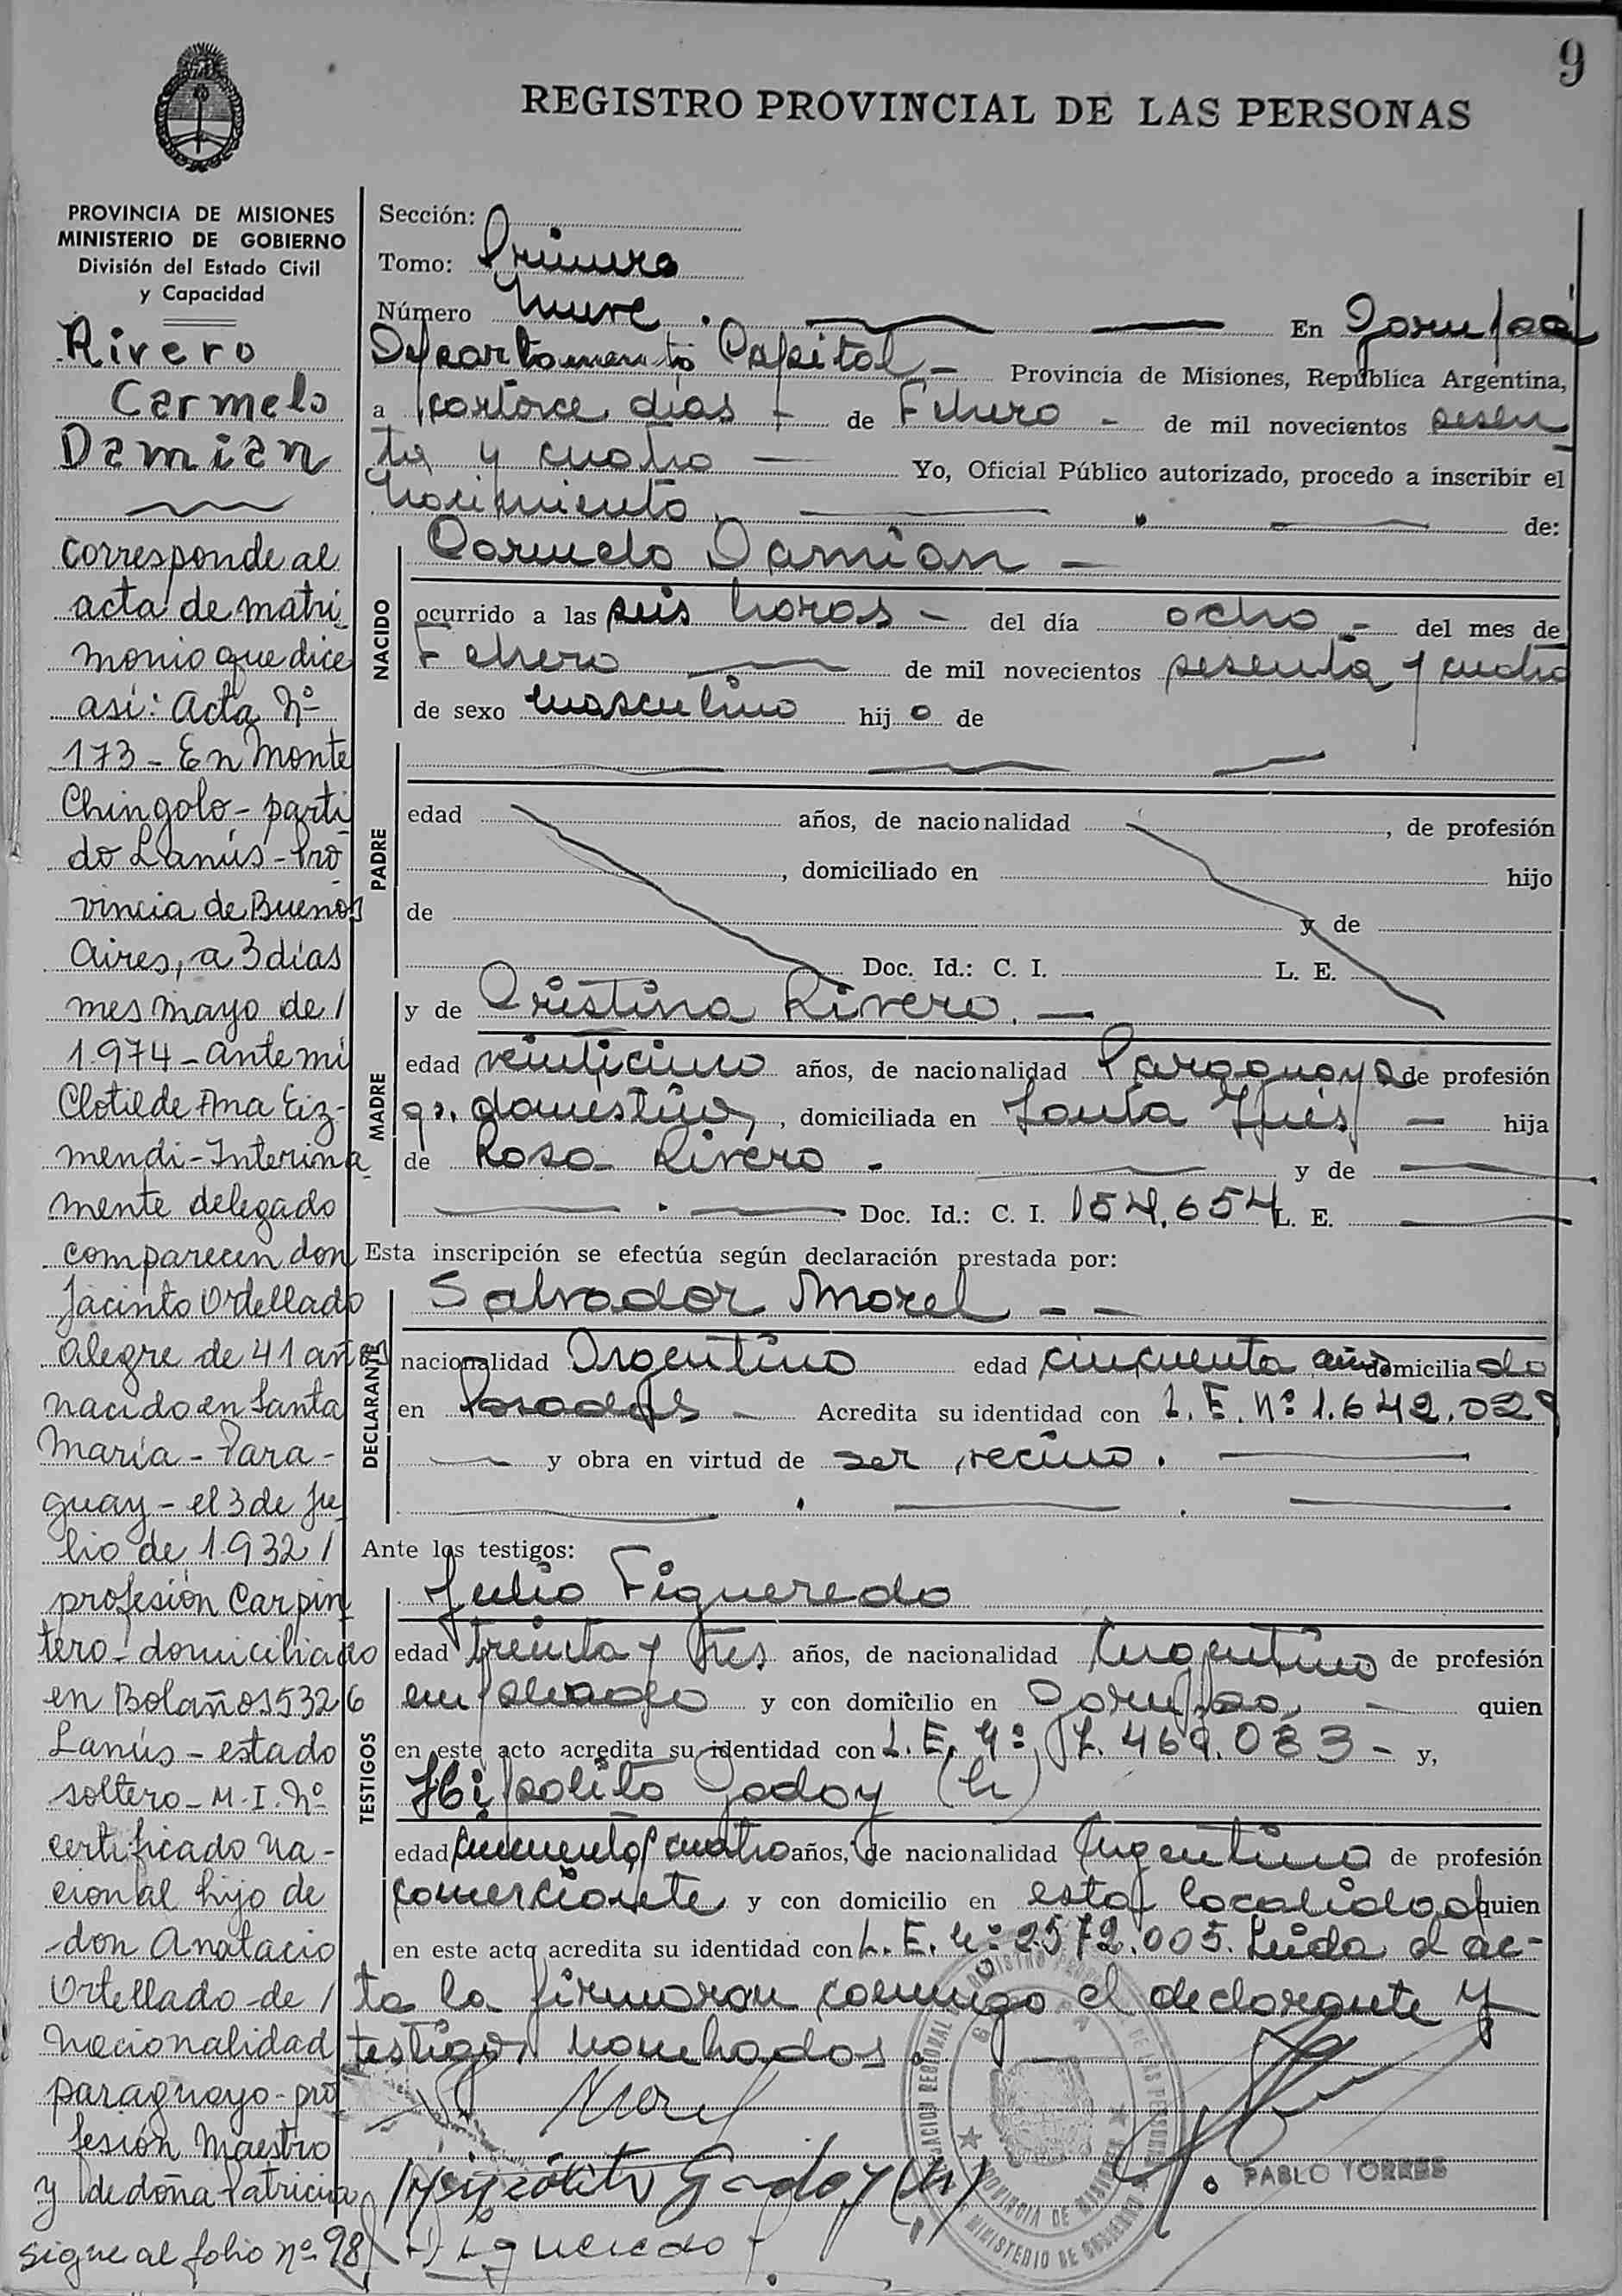 9
REGISTRO PROVINCIAL DE LAS PERSONAS
PROVINCIA DE MISIONES
MINISTERIO DE GOBIERNO
División del Estado Civil
y Capacidad
Rivero
Carmelo
Damian
corresponde al
acta de matri
monio que dice
asi: Acta Nº
173 - En Monte
Chingolo - parti
do Lanús - Pro
vincia de Buenos
Aires, a 3 días
mes mayo de /
1.974 - ante mi
Clotilde Ana Eiz-
mendi - Interina
mente delegado
comparecen don
Jacinto Ortellado
Alegre de 41 años
nacido en Santa
María - Para-
guay - el 3 de Ju
lio de 1.932 /
profesión Carpin
tero - domiciliado
en Bolaños 5326
Lanús - estado
soltero - M.I. Nº
certificado Na-
cional hijo de
don Anatacio
Ortellado - de /
nacionalidad
paraguayo - pro
fesión Maestro
y de doña Patricia
sigue al folio nº 98
Sección:
Tomo: Primero
Número Nueve . En Garupá
Departamento Capital - Provincia de Misiones, República Argentina,
a catorce días - de Febrero - de mil novecientos sesen
ta y cuatro - Yo, Oficial Público autorizado, procedo a inscribir el
Nacimiento de:
NACIDO
Carmelo Damian -
ocurrido a las seis horas - del día ocho - del mes de
Febrero de mil novecientos sesenta y cuatro
de sexo masculino hij o de
PADRE
edad años, de nacionalidad , de profesión
, domiciliado en hijo
de y de
Doc. Id.: C. I. L. E.
MADRE
y de Cristina Rivero. -
edad veinticinco años, de nacionalidad Paraguaya de profesión
q. domésticos, domiciliada en Santa Inés - hija
de Rosa Rivero - y de
Doc. Id.: C. I. 154.654 L. E.
Esta inscripción se efectúa según declaración prestada por:
DECLARANTE
Salvador Morel - -
nacionalidad Argentino edad cincuenta años domicilia do
en Posadas - Acredita su identidad con L.E. Nº 1.642.029
y obra en virtud de ser vecino.
Ante los testigos:
TESTIGOS
Julio Figueredo
edad treinta y tres años, de nacionalidad Argentino de profesión
empleado y con domicilio en Garupá, - quien
en este acto acredita su identidad con L.E. Nº 7.469.083 - y,
Hipolito Godoy (h)
edad cincuenta y cuatro años, de nacionalidad Argentino de profesión
comerciante y con domicilio en esta localidad quien
en este acto acredita su identidad con L.E. Nº 2572.005. Leida el ac-
ta la firmaron conmigo el declarante y
testigos nombrados
Morel
Hipólito Godoy (h)
Figueredo
PABLO TORRES
MINISTERIO DE GOBIERNO
PROVINCIA DE MISIONES